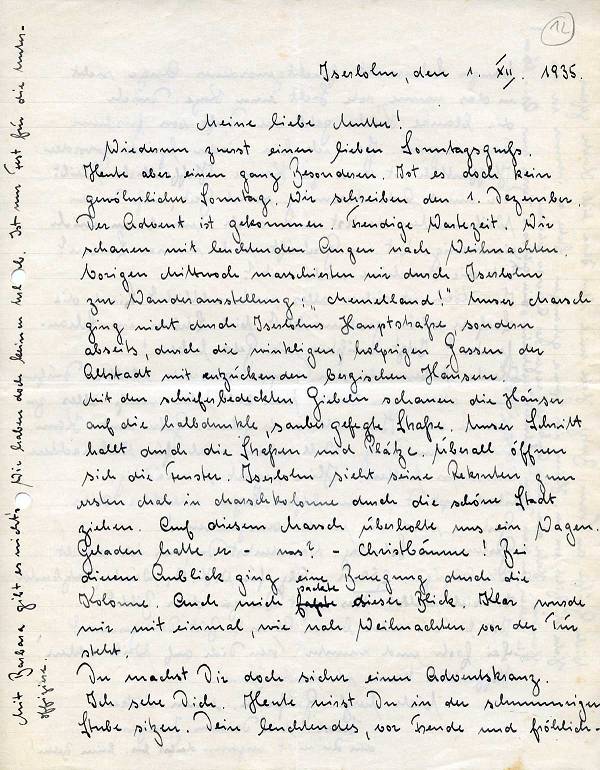 12
Iserlohn, den 1. XII. 1935.
Meine liebe Mutter!
Wiederum zuerst einen lieben Sonntagsgruß.
Heute aber einen ganz Besonderen. Ist es doch kein
gewöhnlicher Sonntag. Wir schreiben den 1. Dezember.
Der Advent ist gekommen. Freudige Wartezeit. Wir
schauen mit leuchtenden Augen nach Weihnachten.
Vorigen Mittwoch marschierten wir durch Iserlohn
zur Wanderausstellung: „Memelland!" Unser Marsch
ging nicht durch Iserlohns Hauptstraße, sondern
abseits, durch die winkligen, holprigen Gassen der
Altstadt mit entzückenden bergischen Häusern.
Mit den schieferbedeckten Giebeln schauen die Häuser
auf die halbdunkle, sauber gefegte Straße. Unser Schritt
hallt durch die Straßen und Plätze. Überall öffnen
sich die Fenster. Iserlohn sieht seine Rekruten zum
ersten Mal in Marschkolonne durch die schöne Stadt
ziehen. Auf diesem Marsch überholte uns ein Wagen.
Geladen hatte er – was? – Christbäume! Bei
diesem Anblick ging eine Bewegung durch die
Kolonne. Auch mich packte dieser Blick. Klar wurde
mir mit einmal, wie nah Weihnachten vor der Tür
steht.
Du machst Dir doch sicher einen Adventskranz.
Ich sehe Dich. Heute wirst Du in der schummrigen
Stube sitzen. Dein leuchtendes, vor Freude und fröhlich-
Mit Barbara gibt es nichts. Wir haben doch keinen Urlaub. Ist nur Fest für die Unter-
offiziere.